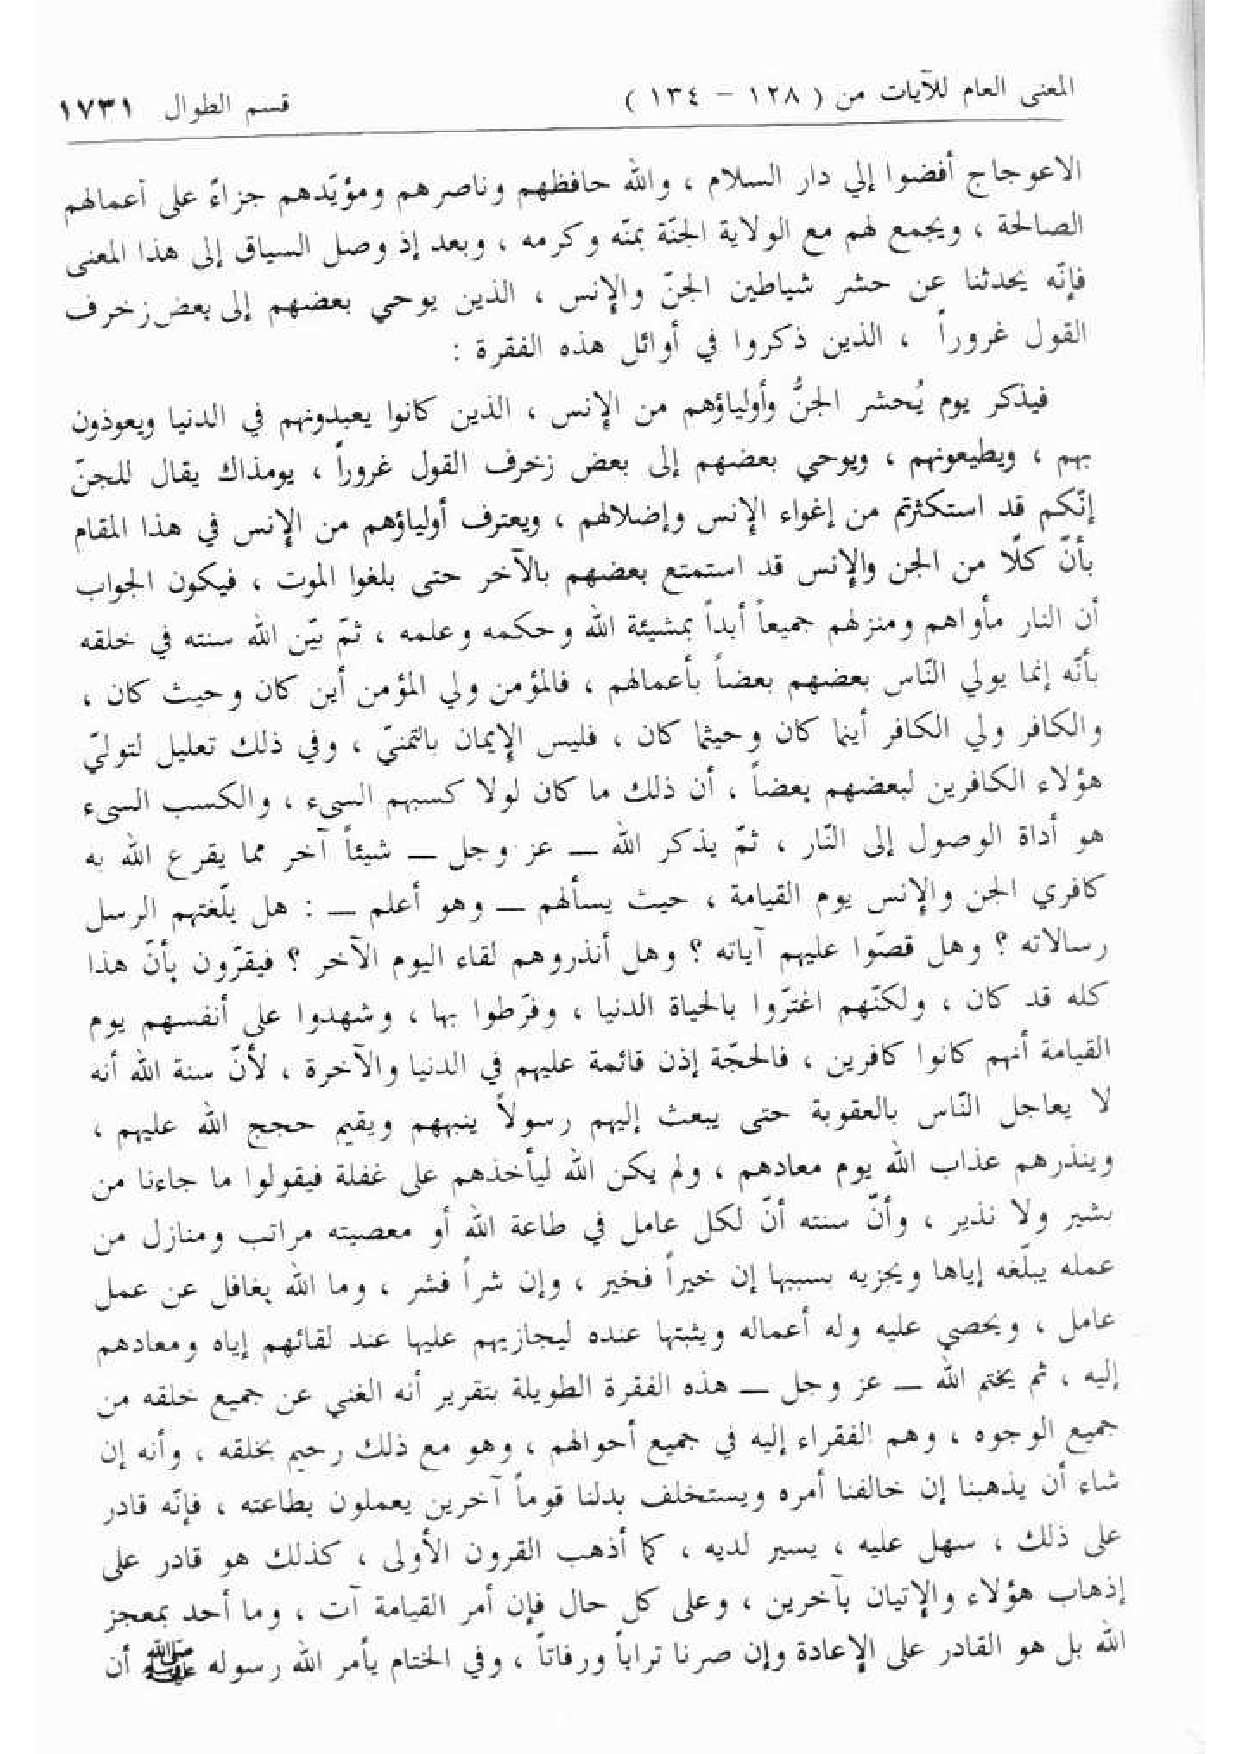 المعنى العام للآيات من ( ١٢٨ - ١٣٤ ) قسم الطوال ١٧٣١
الاعوجاج أفضوا إلي دار السلام ، والله حافظهم وناصرهم ومؤيّدهم جزاءً على أعمالهم
الصالحة ، ويجمع لهم مع الولاية الجنّة بمنّه وكرمه ، وبعد إذ وصل السياق إلى هذا المعنى
فإنّه يحدثنا عن حشر شياطين الجنّ والإنس ، الذين يوحي بعضهم إلى بعض زخرف
القول غروراً ، الذين ذكروا في أوائل هذه الفقرة :
فيذكر يوم يُحشر الجنُّ وأولياؤهم من الإنس ، الذين كانوا يعبدونهم في الدنيا ويعوذون
بهم ، ويطيعونهم ، ويوحي بعضهم إلى بعض زخرف القول غروراً ، يومذاك يقال للجنّ
إنّكم قد استكثرتم من إغواء الإنس وإضلالهم ، ويعترف أولياؤهم من الإنس في هذا المقام
بأنّ كلًا من الجن والإنس قد استمتع بعضهم بالآخر حتى بلغوا الموت ، فيكون الجواب
أن النار مأواهم ومنزلهم جميعاً أبداً بمشيئة الله وحكمه وعلمه ، ثمّ بيّن الله سنته في خلقه
بأنّه إنما يولي النّاس بعضهم بعضاً بأعمالهم ، فالمؤمن ولي المؤمن أين كان وحيث كان ،
والكافر ولي الكافر أينما كان وحيثما كان ، فليس الإيمان بالتمنيّ ، وفي ذلك تعليل لتوليّ
هؤلاء الكافرين لبعضهم بعضاً ، أن ذلك ما كان لولا كسبهم السيء ، والكسب السيء
هو أداة الوصول إلى النّار ، ثمّ يذكر الله ـ عز وجل ـ شيئاً آخر مما يقرع الله به
كافري الجن والإنس يوم القيامة ، حيث يسألهم ـ وهو أعلم ـ : هل بلّغتهم الرسل
رسالاته ؟ وهل قصّوا عليهم آياته ؟ وهل أنذروهم لقاء اليوم الآخر ؟ فيقرّون بأنّ هذا
كله قد كان ، ولكنّهم اغترّوا بالحياة الدنيا ، وفرّطوا بها ، وشهدوا على أنفسهم يوم
القيامة أنهم كانوا كافرين ، فالحجّة إذن قائمة عليهم في الدنيا والآخرة ، لأنّ سنة الله أنه
لا يعاجل النّاس بالعقوبة حتى يبعث إليهم رسولاً ينبههم ويقيم حجج الله عليهم ،
وينذرهم عذاب الله يوم معادهم ، ولم يكن الله ليأخذهم على غفلة فيقولوا ما جاءنا من
بشير ولا نذير ، وأنّ سنته أنّ لكل عامل في طاعة الله أو معصيته مراتب ومنازل من
عمله يبلّغه إياها ويجزيه بسببها إن خيراً فخير ، وإن شراً فشر ، وما الله بغافل عن عمل
عامل ، ويحصي عليه وله أعماله ويثبتها عنده ليجازيهم عليها عند لقائهم إياه ومعادهم
إليه ، ثم يختم الله ـ عز وجل ـ هذه الفقرة الطويلة بتقرير أنه الغني عن جميع خلقه من
جميع الوجوه ، وهم الفقراء إليه في جميع أحوالهم ، وهو مع ذلك رحيم بخلقه ، وأنه إن
شاء أن يذهبنا إن خالفنا أمره ويستخلف بدلنا قوماً آخرين يعملون بطاعته ، فإنّه قادر
على ذلك ، سهل عليه ، يسير لديه ، كما أذهب القرون الأولى ، كذلك هو قادر على
إذهاب هؤلاء والإتيان بآخرين ، وعلى كل حال فإن أمر القيامة آت ، وما أحد بمعجز
الله بل هو القادر على الإعادة وإن صرنا تراباً ورفاتاً ، وفي الختام يأمر الله رسوله ﷺ أن